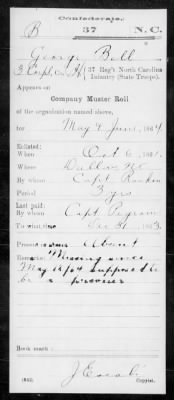 Confederate.
B 37 N.C.
George Bell
3 Corpl, Co. H, 37 Reg't North Carolina
Infantry (State Troops).
Appears on
Company Muster Roll
of the organization named above,
for May & June, 1864
Enlisted:
When Oct 6, 1861
Where Dallas N.C.
By whom Capt. Rankin
Period 3 yrs
Last paid:
By whom Capt Pegram
To what time Dec 31, 1863
Present or absent Absent
Remarks: Missing since
May 12/64 supposed to
be a prisoner
Book mark:
(642)
Copyist.